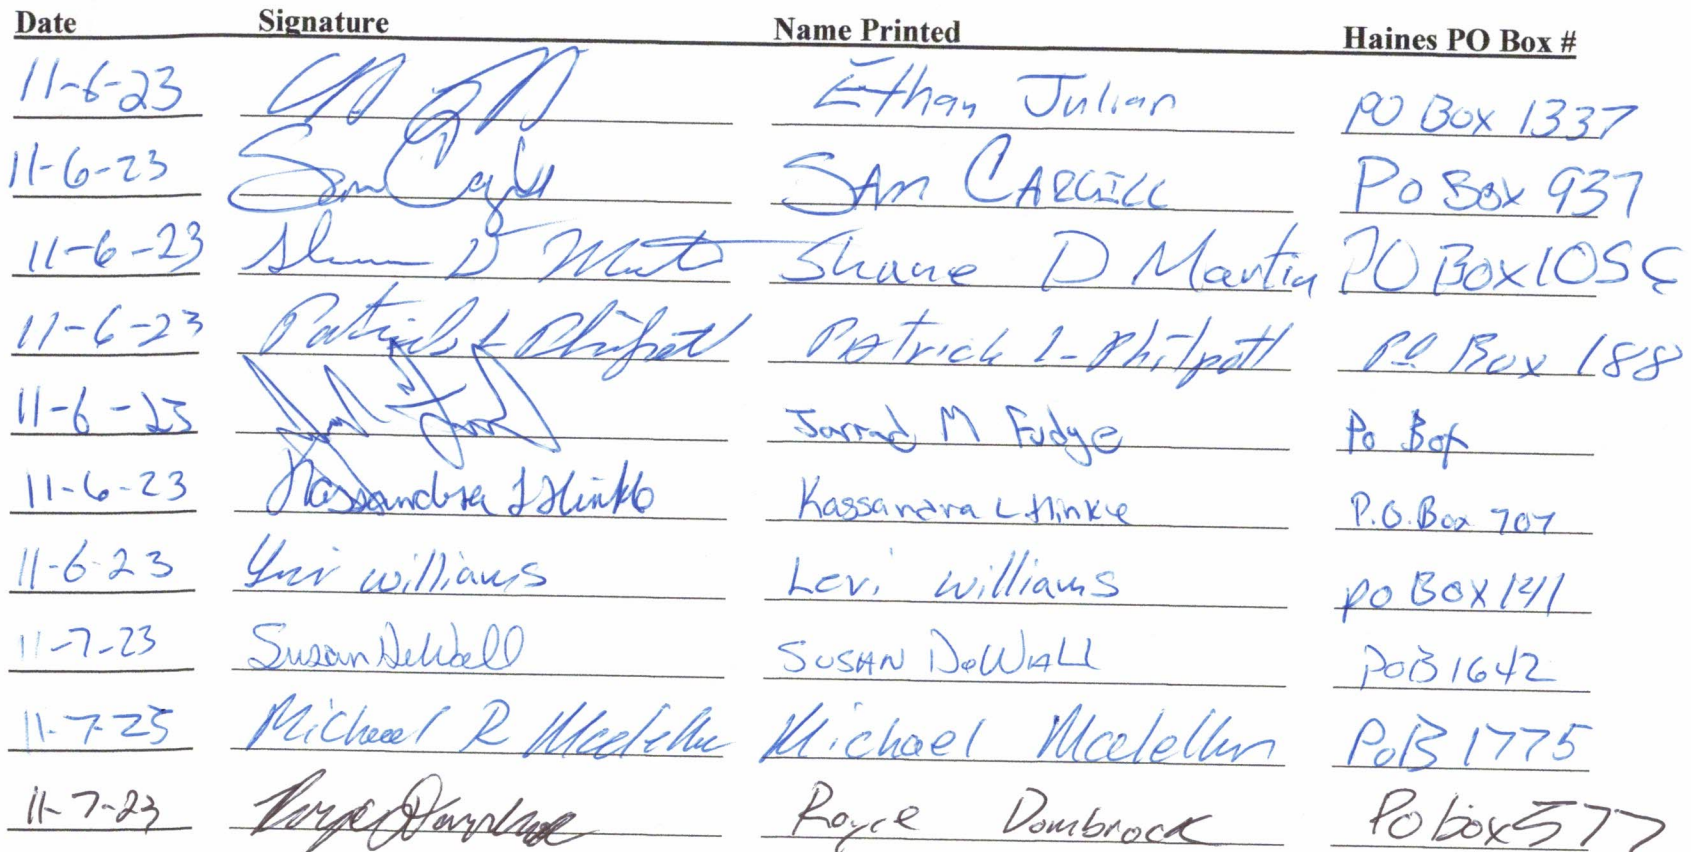 Date Signature Name Printed Haines PO Box #
11-6-23 Ethan Julian PO Box 1337
11-6-23 Sam Cargill SAM CARGILL PO Box 937
11-6-23 Shane D Martin Shane D Martin PO Box 1055
11-6-23 Patrick L Philpott Patrick L Philpott PO Box 188
11-6-23 Jarrad M Fudge Po Box
11-6-23 Kassandra L Hinkle Kassandra L Hinkle P.O. Box 707
11-6-23 Levi Williams Levi Williams PO Box 1411
11-7-23 Susan DeWall SUSAN DeWALL POB 1642
11-7-23 Michael R Mcclellan Michael Mcclellan PoB 1775
11-7-23 Royce Dombrock Royce Dombrock Po box 577